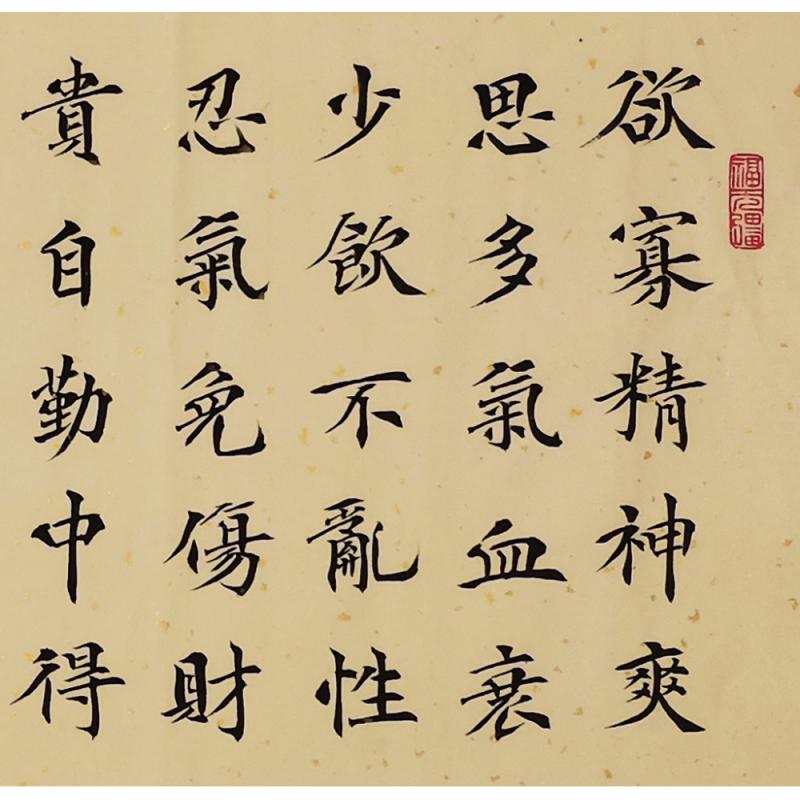 欲寡精神爽
思多氣血衰
少飲不亂性
忍氣免傷財
貴自勤中得